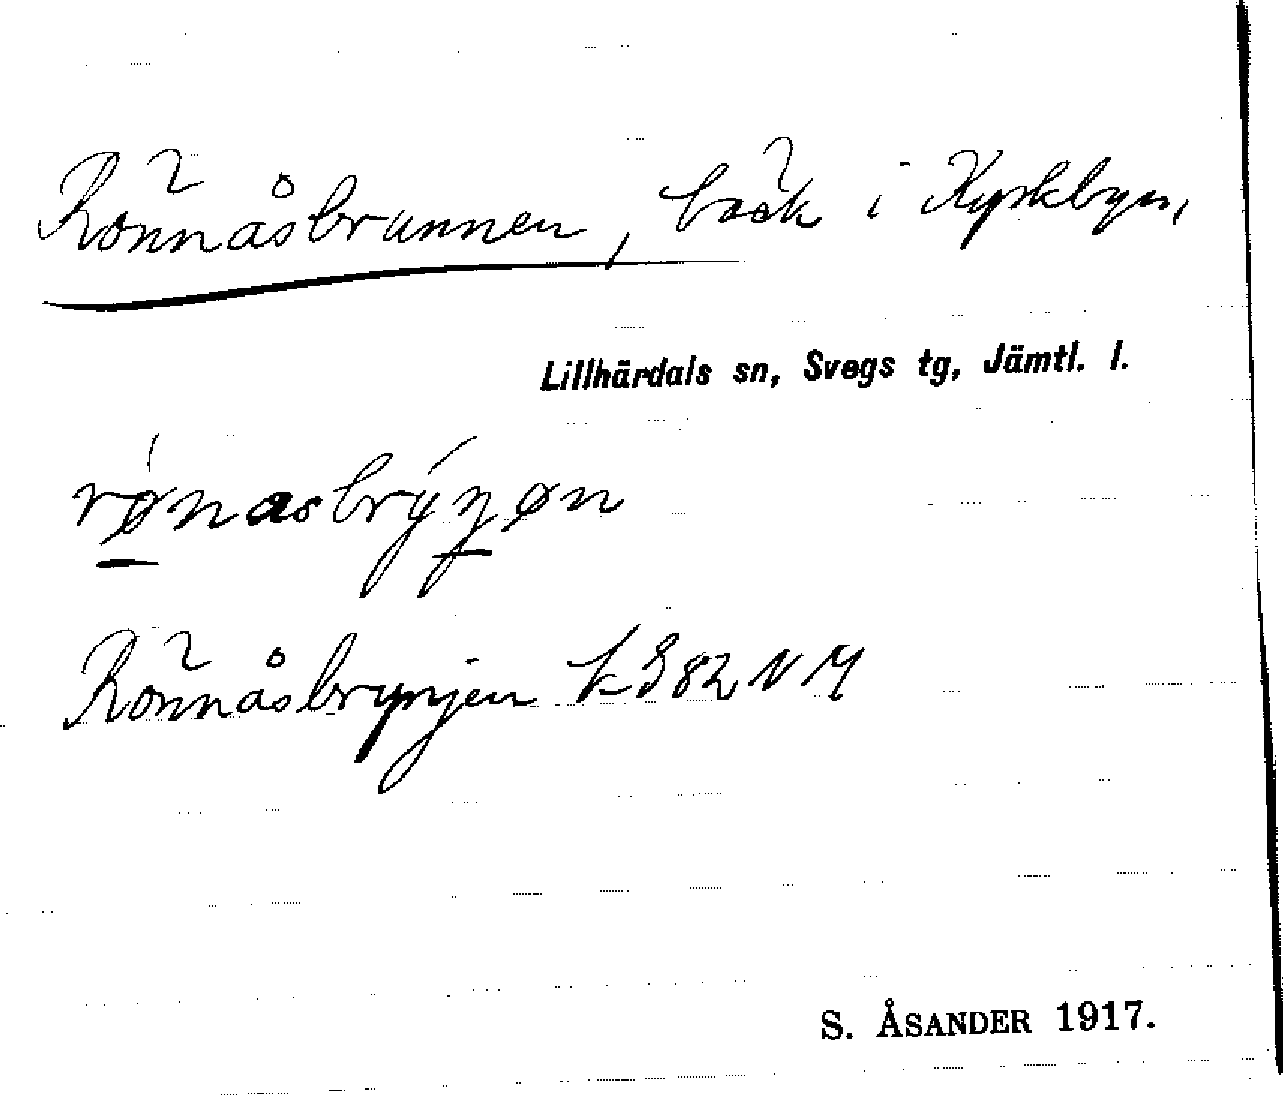 Rönnåsbrunnen, bäck i Kyrkbyn,
Lillhärdals sn, Svegs tg, Jämtl. l.
rønasbrýŋøn
Rönnåsbrynjen
S. ÅSANDER 1917.